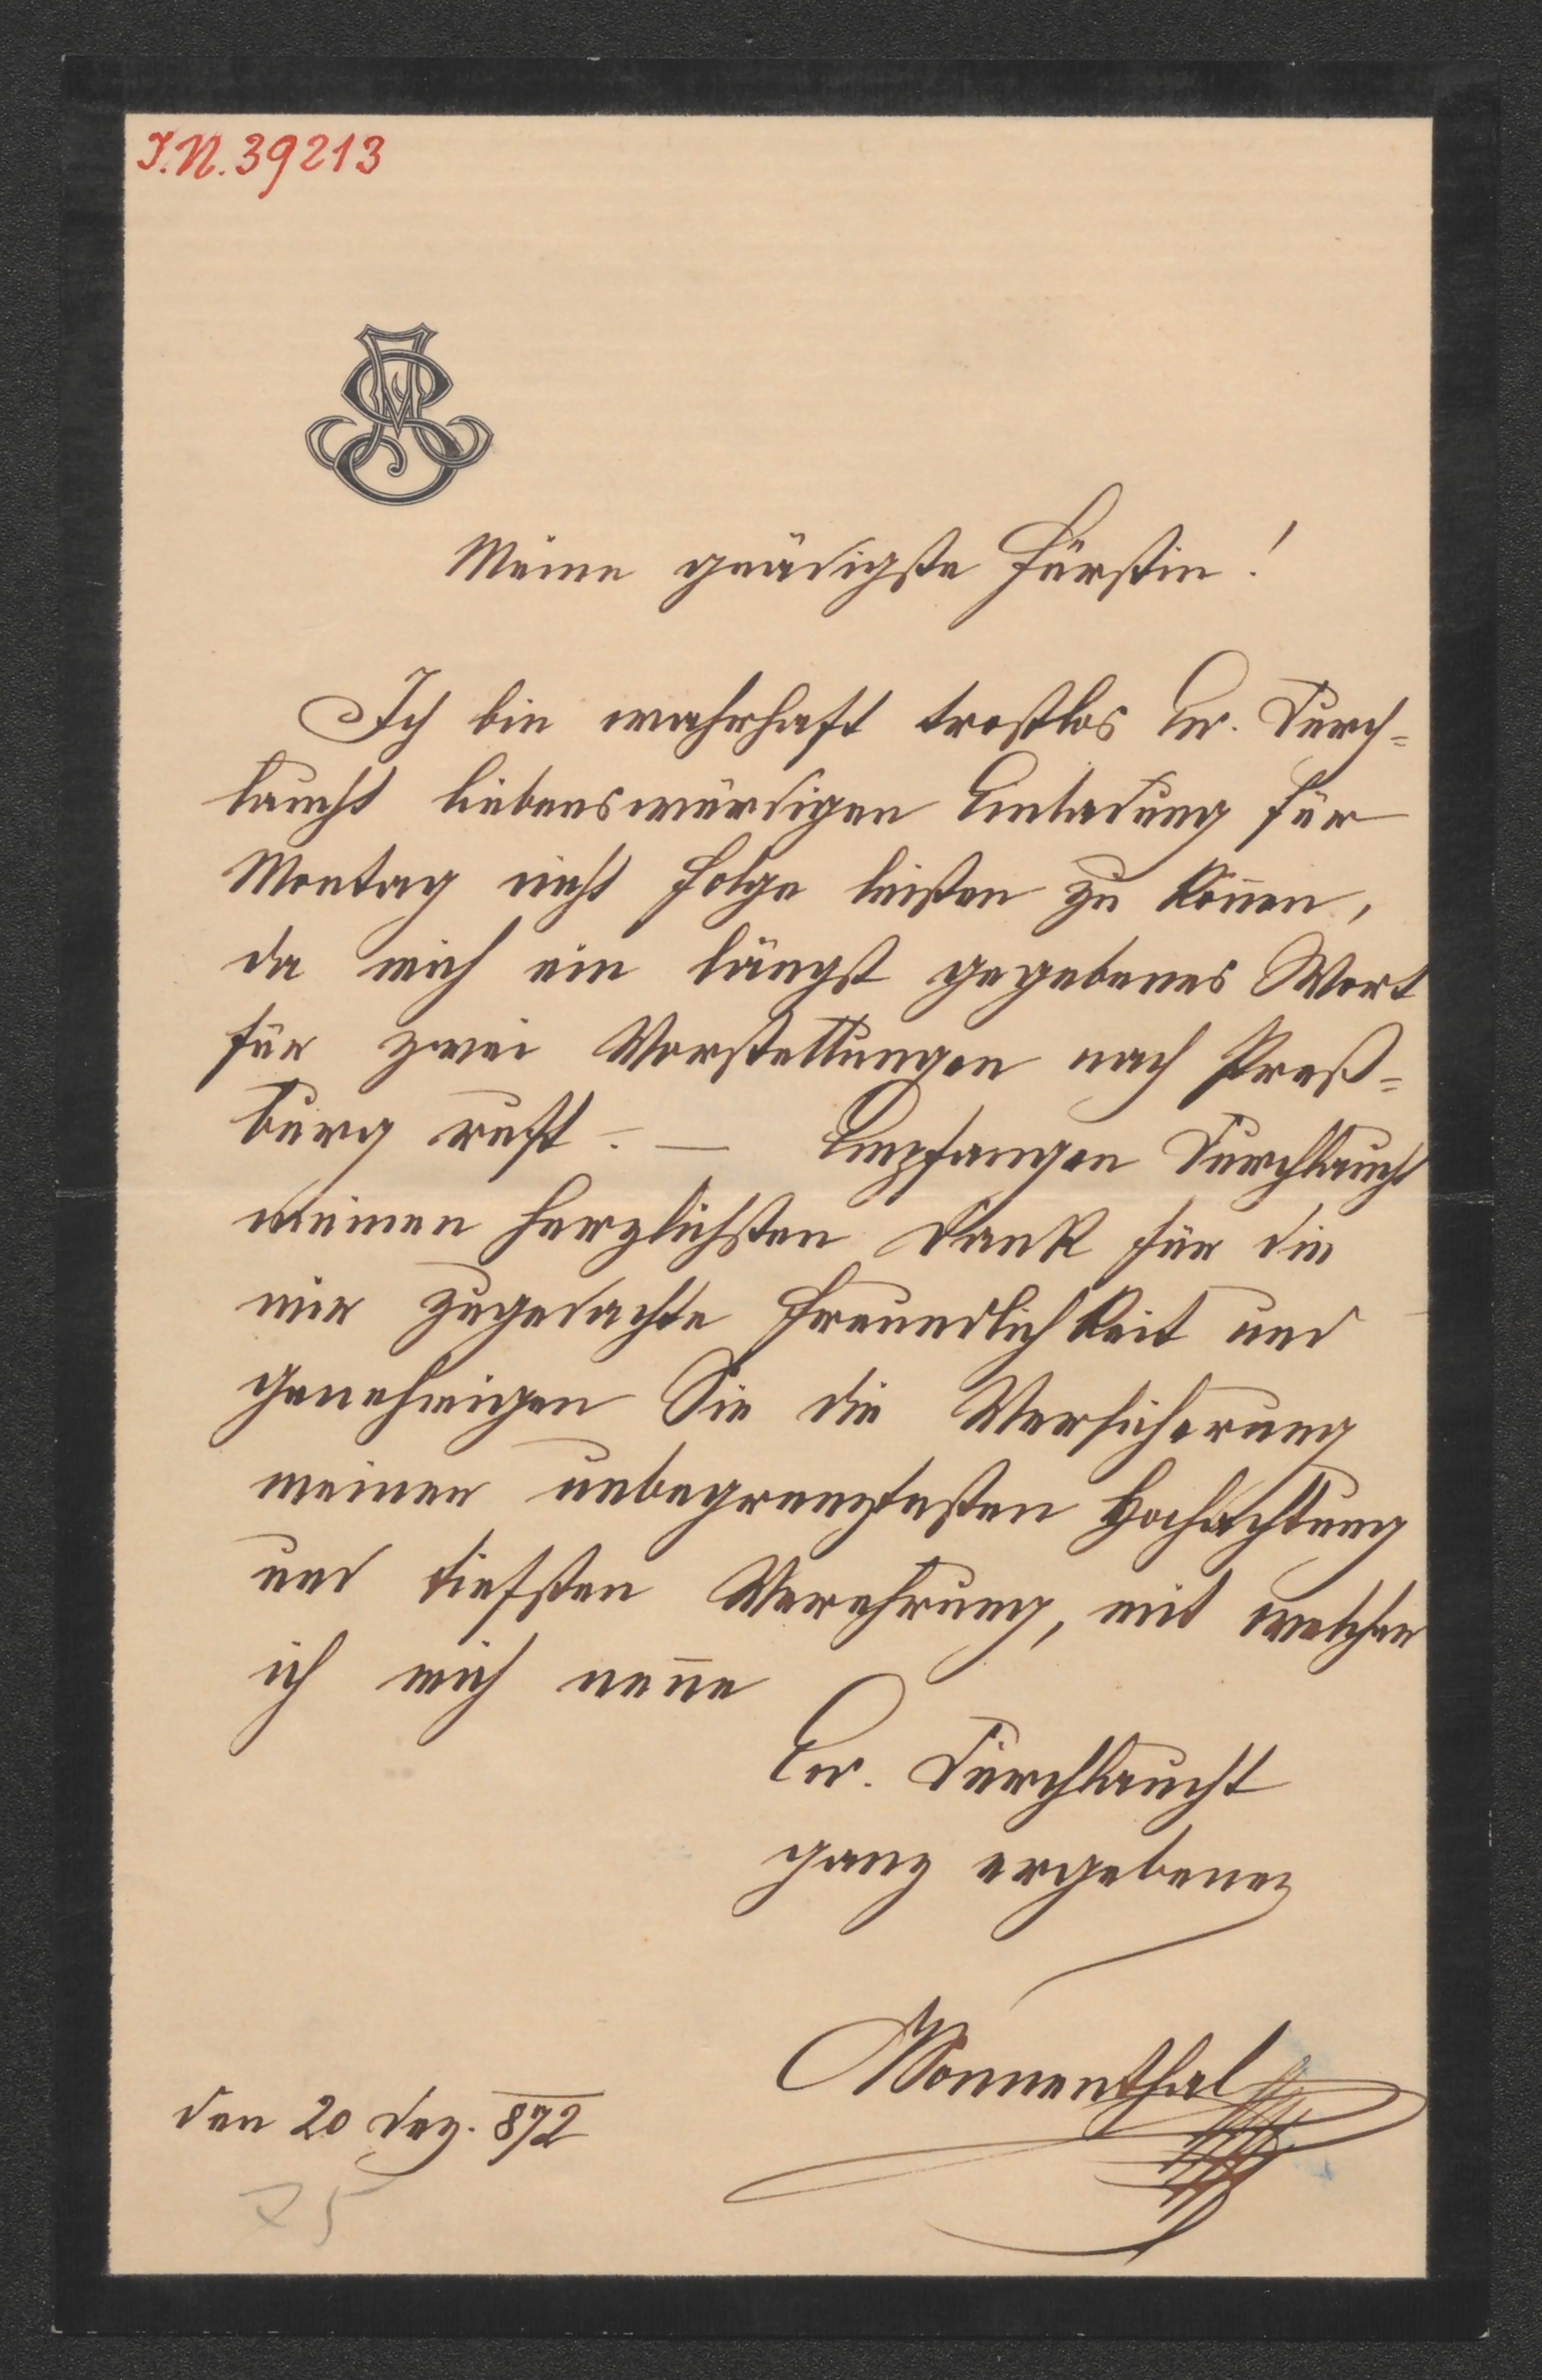 I.N. 39213
Meine gnädigste Fürstin!
Ich bin wahrhaft trostlos Ew. Durch=
laucht liebenswürdigen Einladung für
Montag nicht Folge leisten zu kön̄en,
da mich ein längst gegebenes Wort
für zwei Vorstellungen nach Preß=
burg ruft. — Empfangen Durchlaucht
meinen herzlichsten Dank für die
mir zugedachte Freundlichkeit und
genehmigen Sie die Versicherung
meiner unbegrenztesten Hochachtung
und tiefsten Verehrung, mit welcher
ich mich nen̄e
Ew. Durchlaucht
ganz ergebener
Sonnenthal
den 20 Dez. 872
25